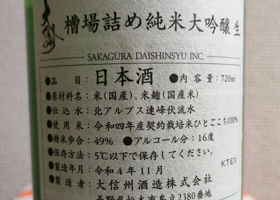 大信州
槽場詰め純米大吟醸 生
SAKAGURA DAISHINSYU INC
●品目：日本酒 ●内容量：720ml
●原材料名：米(国産)、米麹(国産米)
●仕込水：北アルプス連峰伏流水
●使用米：令和四年産契約栽培米ひとごこち100%
●精米歩合：49% ●アルコール分：16度
●保存方法：5℃以下で保存してください。
●製造年月：令和4年11月
●製造者：大信州酒造株式会社
長野県松本市島立2380番地
KTEX